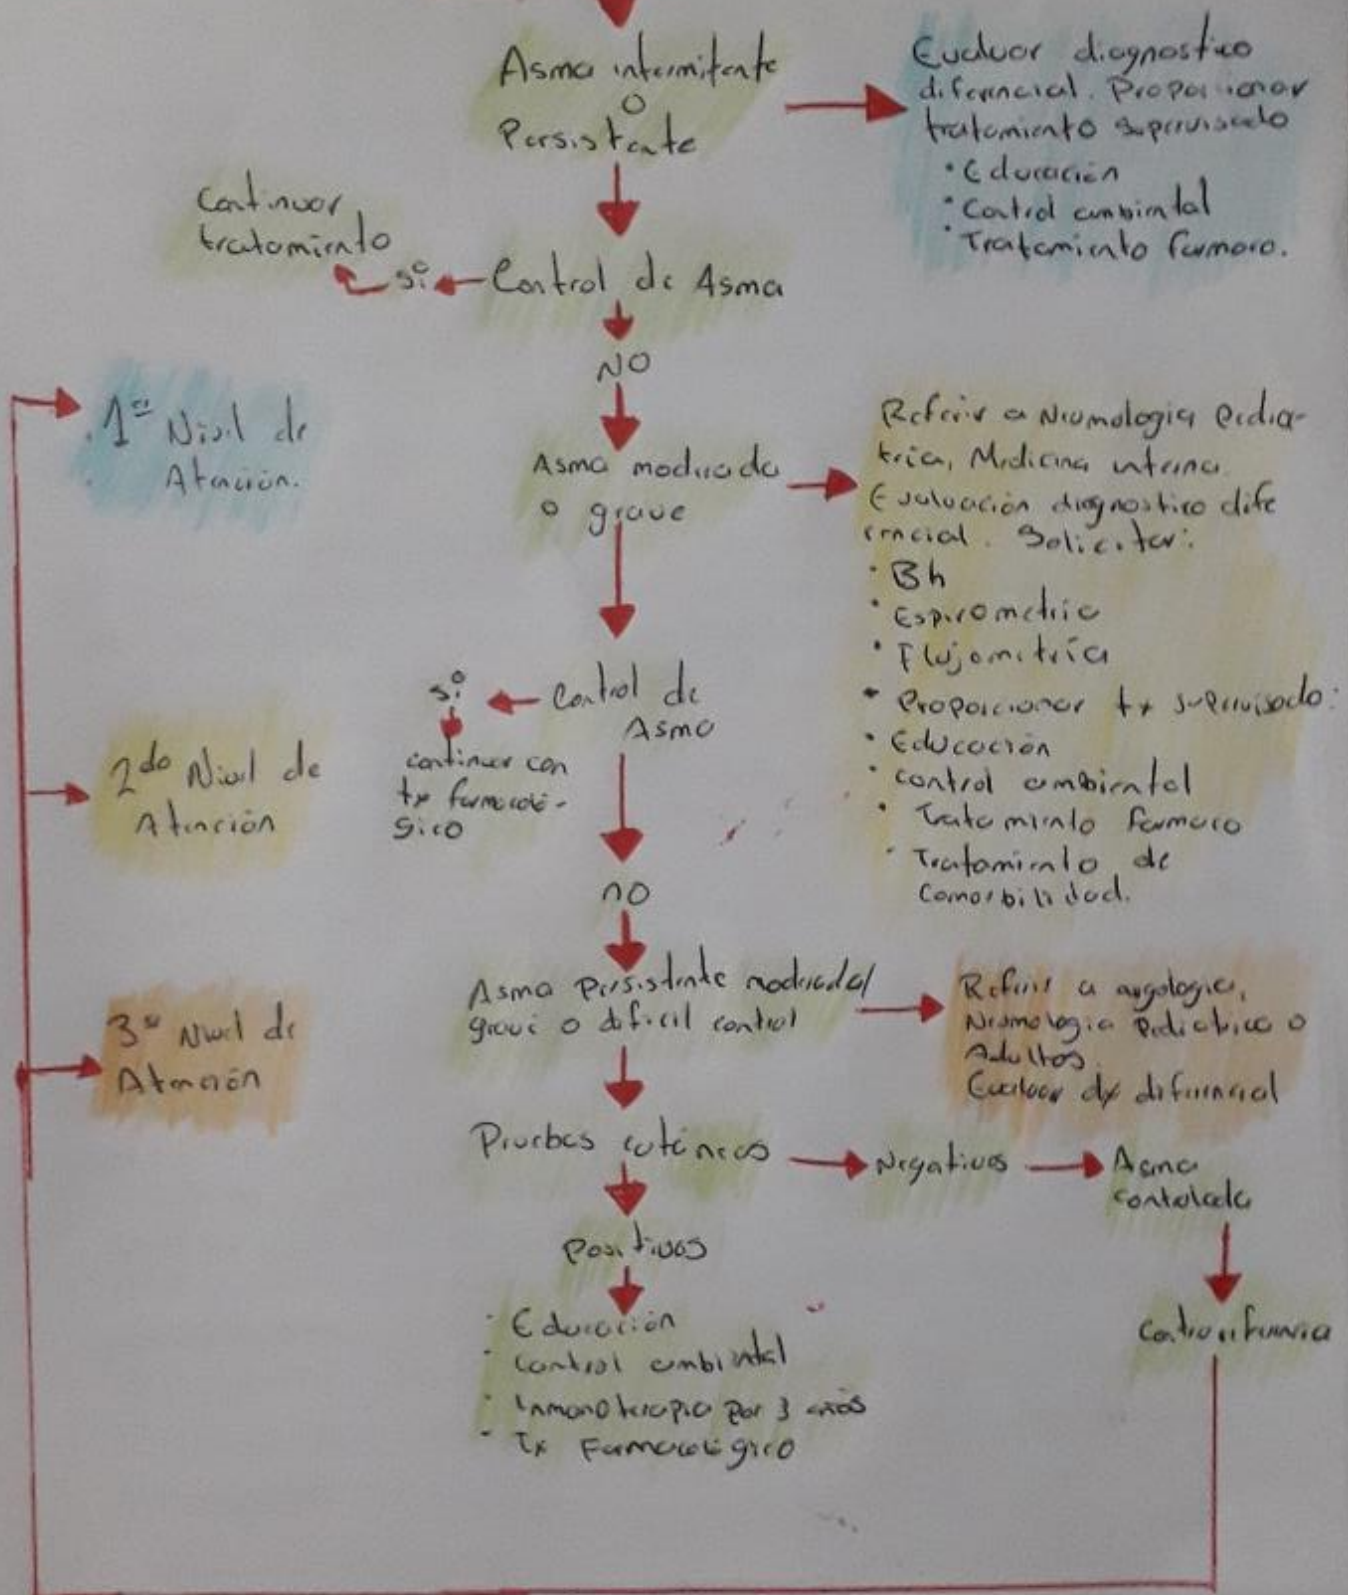 Asma intermitente
o
Persistente
Evaluar diagnostico
diferencial. Proporcionar
tratamiento supervisado
• Educación
• Control ambiental
• Tratamiento farmaco.
Continuar
tratamiento
si
Control de Asma
NO
1er Nivel de
Atención.
Asma moderada
o grave
Referir a Neumologia Pedia-
tria, Medicina interna.
Evaluación diagnostico dife
rencial. Solicitar:
• Bh
• Espirometria
• Flujometría
• Proporcionar tx supervisado:
• Educación
• control ambiental
• Tratamiento farmaco
• Tratamiento de
Comorbilidad.
si
Control de
Asma
continuar con
tx farmacoló-
gico
2do Nivel de
Atención
no
Asma Persistente moderada/
grave o dificil control
Referir a
Neumologia Pediatrica o
Adultos.
Evaluar dx diferencial
3er Nivel de
Atención
Pruebas cutáneas
Negativas
Asma
controlada
Positivas
• Educación
• Control ambiental
• Inmunoterapia por 3 años
• Tx Farmacológico